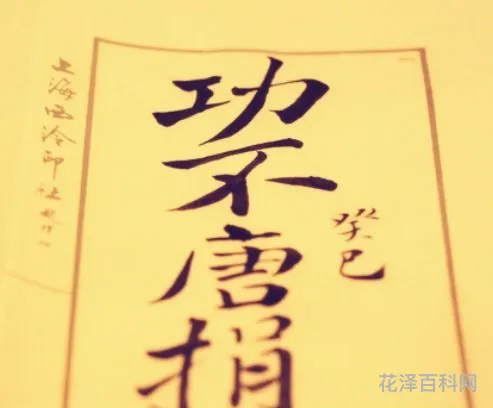 功不唐捐
癸巳
上海西泠印社
花泽百科网